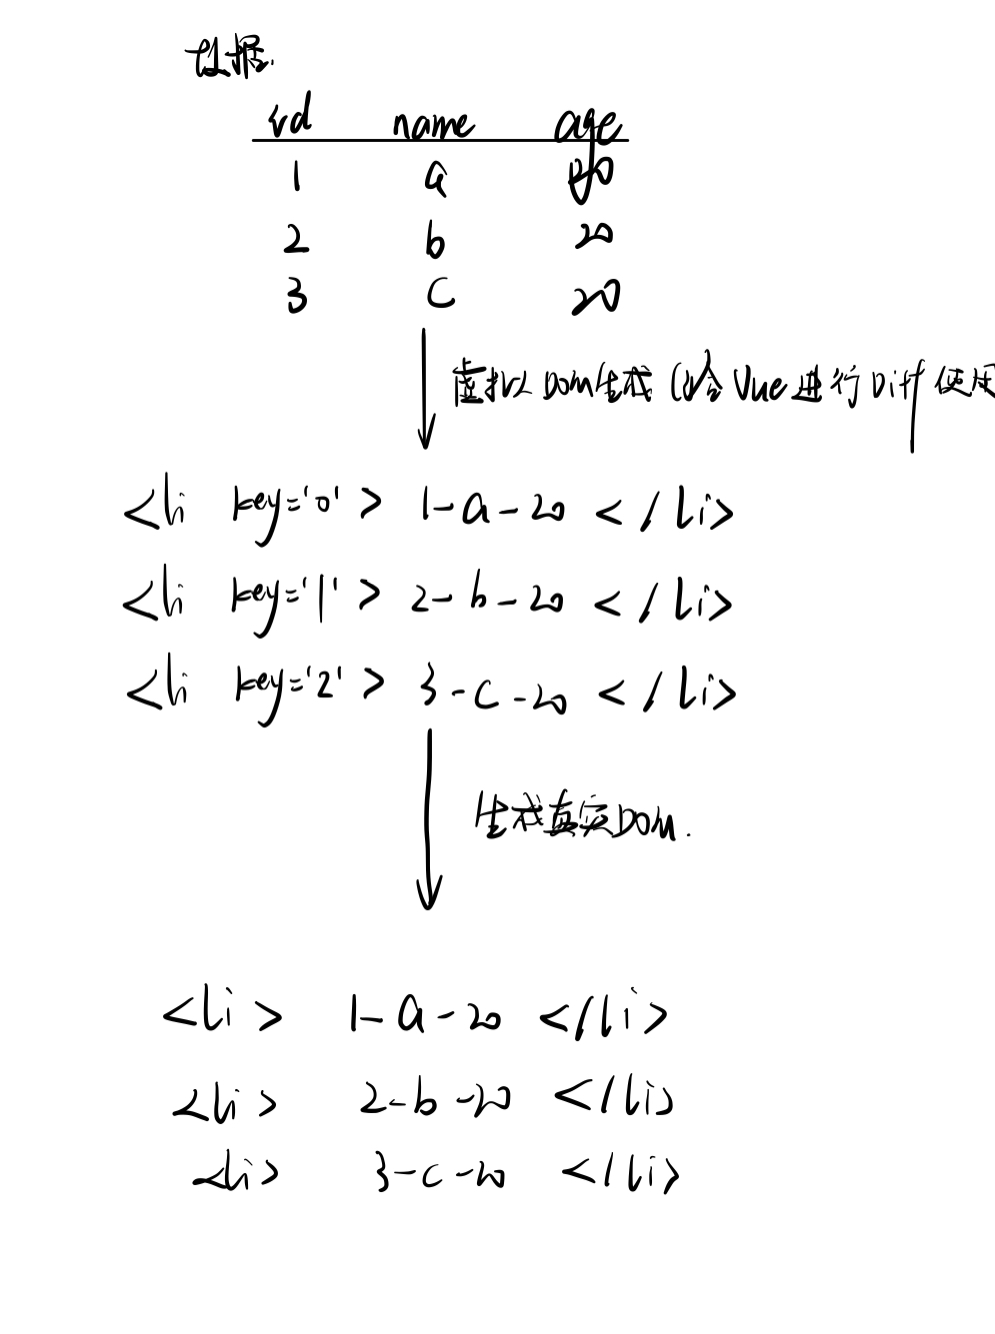 数据.
id name age
1 a 20
2 b 20
3 c 20
虚拟Dom生成 (给Vue进行Diff使用
<li key='0'> 1-a-20 </li>
<li key='1'> 2-b-20 </li>
<li key='2'> 3-c-20 </li>
生成真实Dom.
<li> 1-a-20 </li>
<li> 2-b-20 </li>
<li> 3-c-20 </li>